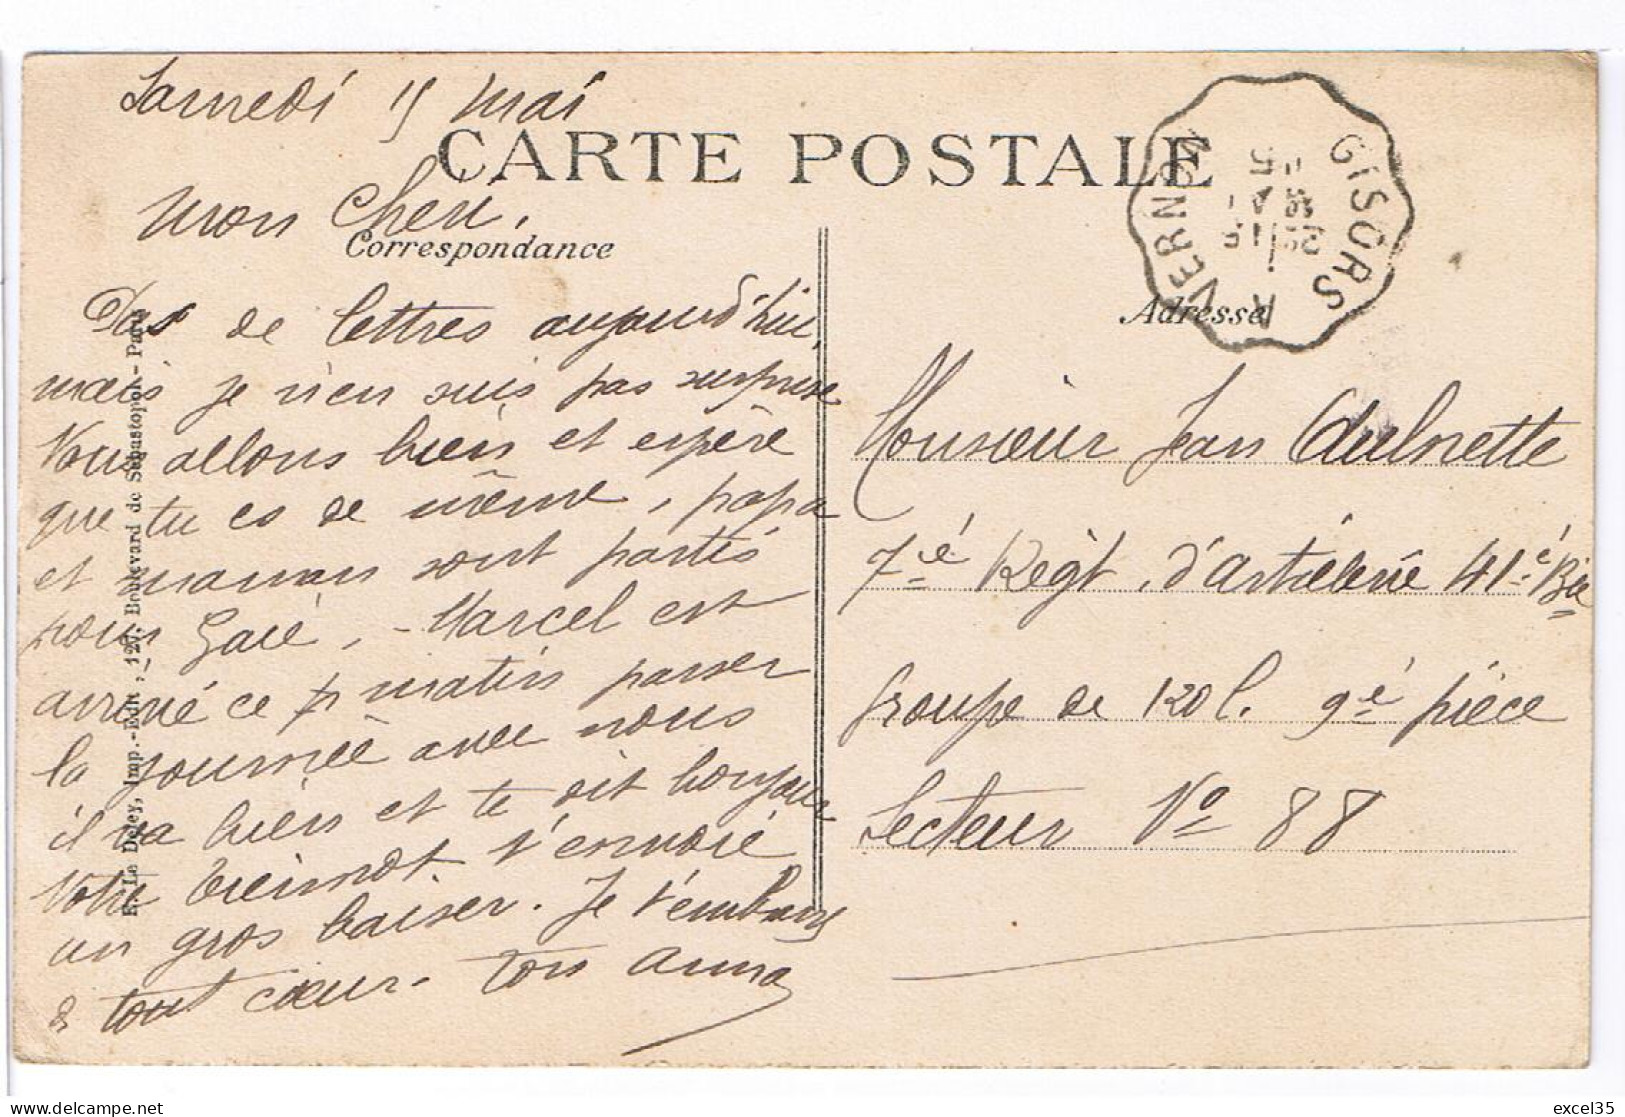 Samedi 15 mai
CARTE POSTALE
Mon Cheri,
Correspondance
Pas de lettres aujourd'hui,
mais je n'en suis pas surprise
Nous allons bien et espère
que tu es de même, papa
et maman sont partis
pour Gaié, - Marcel est
arrivé ce matin passer
la journée avec nous
il va bien et te dit bonjour
Votre t'envoie
un gros baiser. Je t'embrasse
de tout cœur. Ton Anna
E. Le Deley, Imp.-Edit., 127, Boulevard de Sébastopol - Paris
GISORS
VERNON
Adresse
Monsieur Jean Aulnette
7ie Regt. d'Artielerie 41e Bie
Groupe de 120 l. 9e pièce
Secteur No 88
delcampe.net
excel35